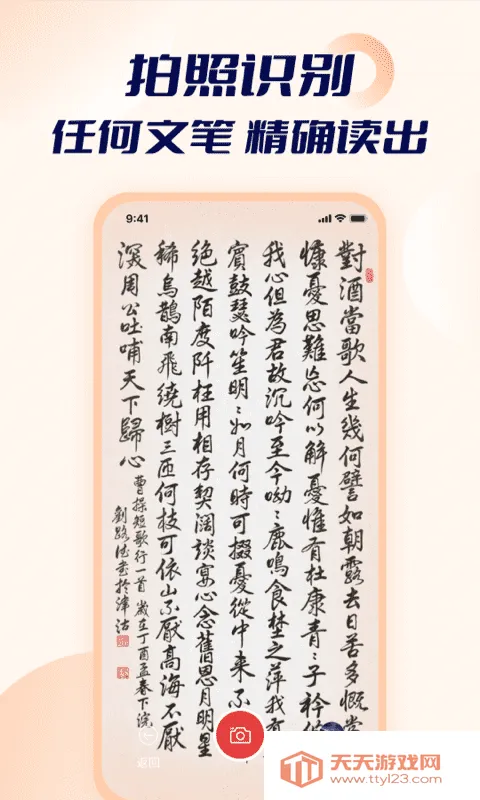 拍照识别
任何文笔 精确读出
9:41
對酒當歌人生幾何譬如朝露去日苦多慨當
慷憂思難忘何以解憂惟有杜康青〻子衿
我心但為君故沉吟至今呦〻鹿鳴食埜之萍我有
賓鼓瑟吟笙明〻如月何時可掇憂從中來不
絕越陌度阡枉用相存契闊談宴心念舊恩月明星
稀烏鵲南飛繞樹三匝何枝可依山不厭高海不厭
深周公吐哺天下歸心
曹操短歌行一首 歲在丁酉孟春下浣
劉路德書於津沽
返回
天天游戏网
www.ttyl23.com